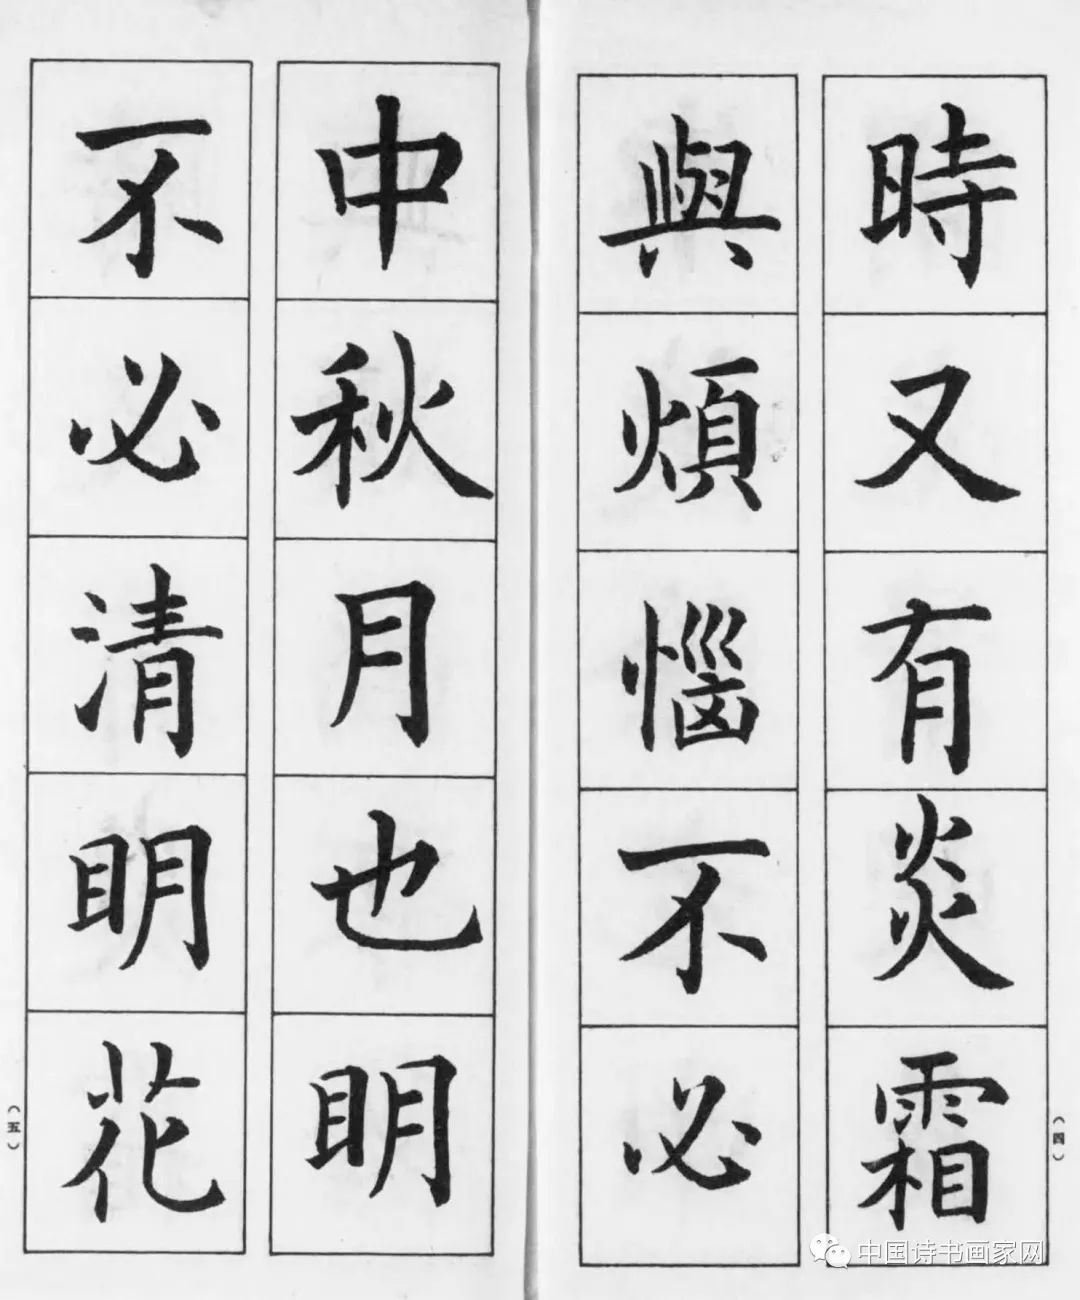 時又有炎霜
與煩惱不必
中秋月也明
不必清明花
（四）
（五）
中国诗书画家网